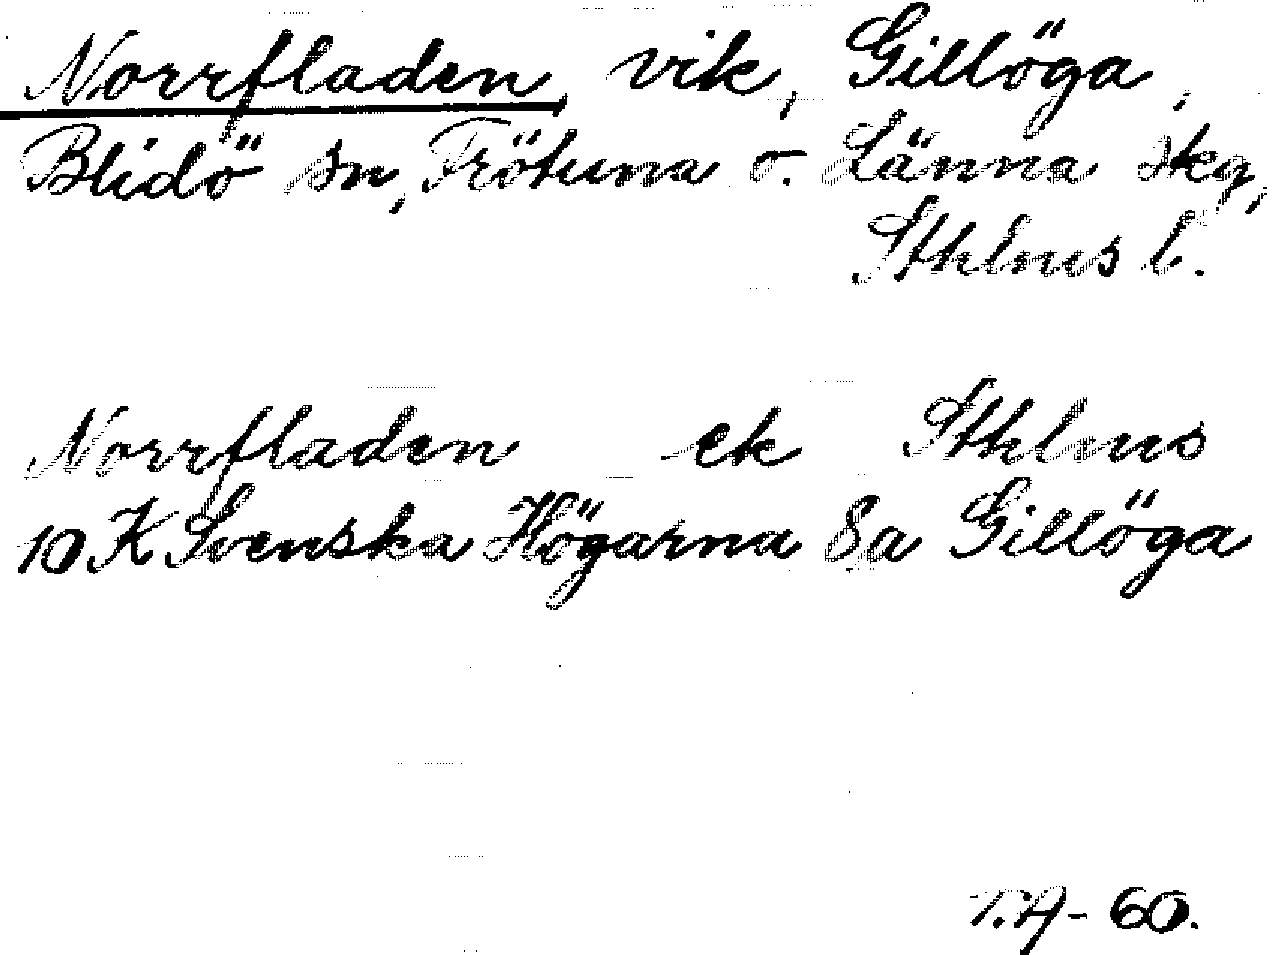 Norrfladen, vik, Gillöga,
Blidö sn, Frötuna o. Länna skg,
Sthlms l.
Norrfladen ek Sthlms
10 K Svenska Högarna 8a Gillöga
T.A-60.